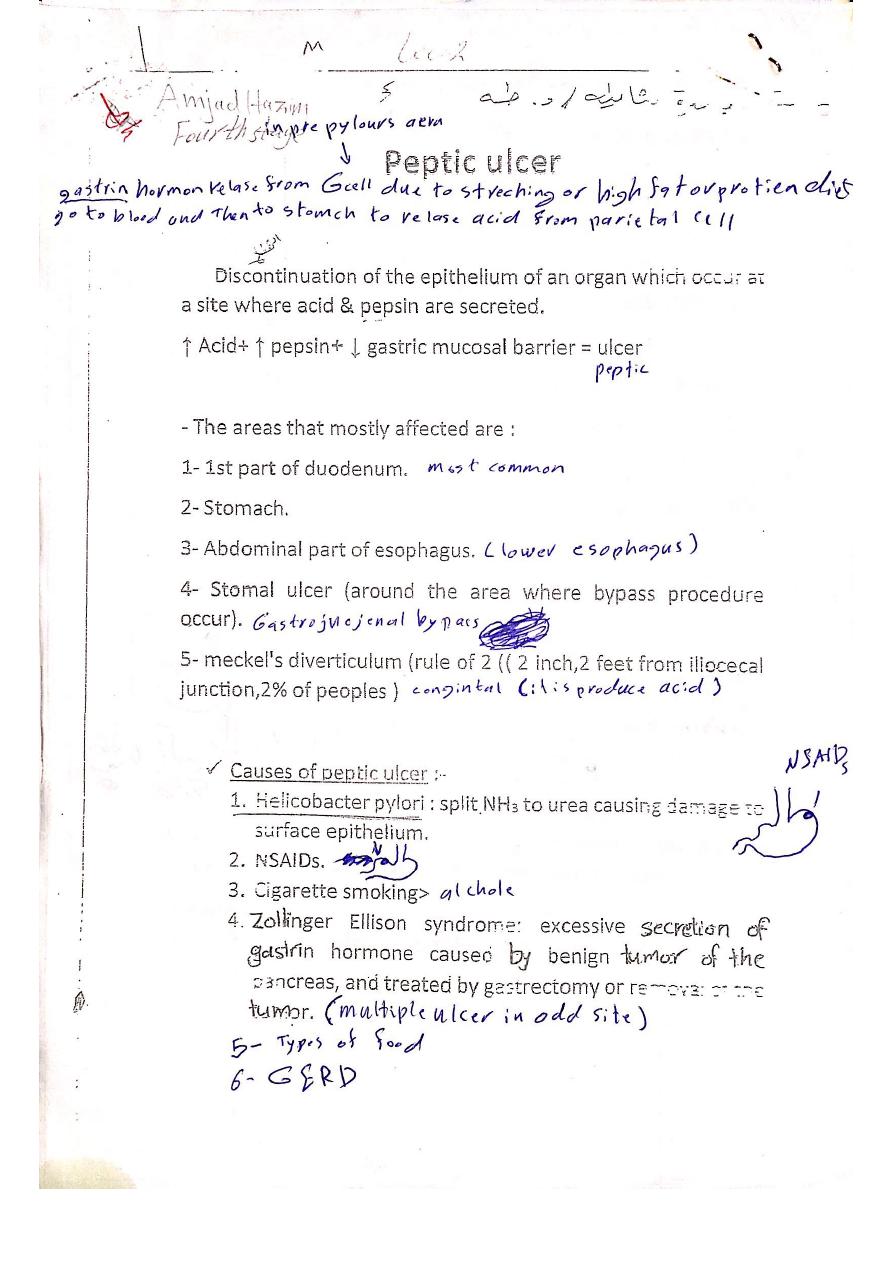 M Lec 2
Amjad Hazim
Fourth stage
in pre pylours aera
Peptic ulcer
gastrin hormon relase from Gcell due to streching or high fat or protien diet
go to blood and then to stomch to relase acid from parietal cell
Discontinuation of the epithelium of an organ which occur at
a site where acid & pepsin are secreted.
↑ Acid+ ↑ pepsin+ ↓ gastric mucosal barrier = ulcer
peptic
- The areas that mostly affected are :
1- 1st part of duodenum. most common
2- Stomach.
3- Abdominal part of esophagus. (lower esophagus)
4- Stomal ulcer (around the area where bypass procedure
occur). Gastrojuejenal bypacs
5- meckel's diverticulum (rule of 2 (( 2 inch,2 feet from iliocecal
junction,2% of peoples ) congintal (it is produce acid)
NSAIDs
✓ Causes of peptic ulcer :-
1. Helicobacter pylori : split NH₃ to urea causing damage to
surface epithelium.
2. NSAIDs.
3. Cigarette smoking> alchole
4. Zollinger Ellison syndrome: excessive secretion of
gastrin hormone caused by benign tumor of the
pancreas, and treated by gastrectomy or removal of the
tumor. (multiple ulcer in odd site)
5- Types of food
6- GERD